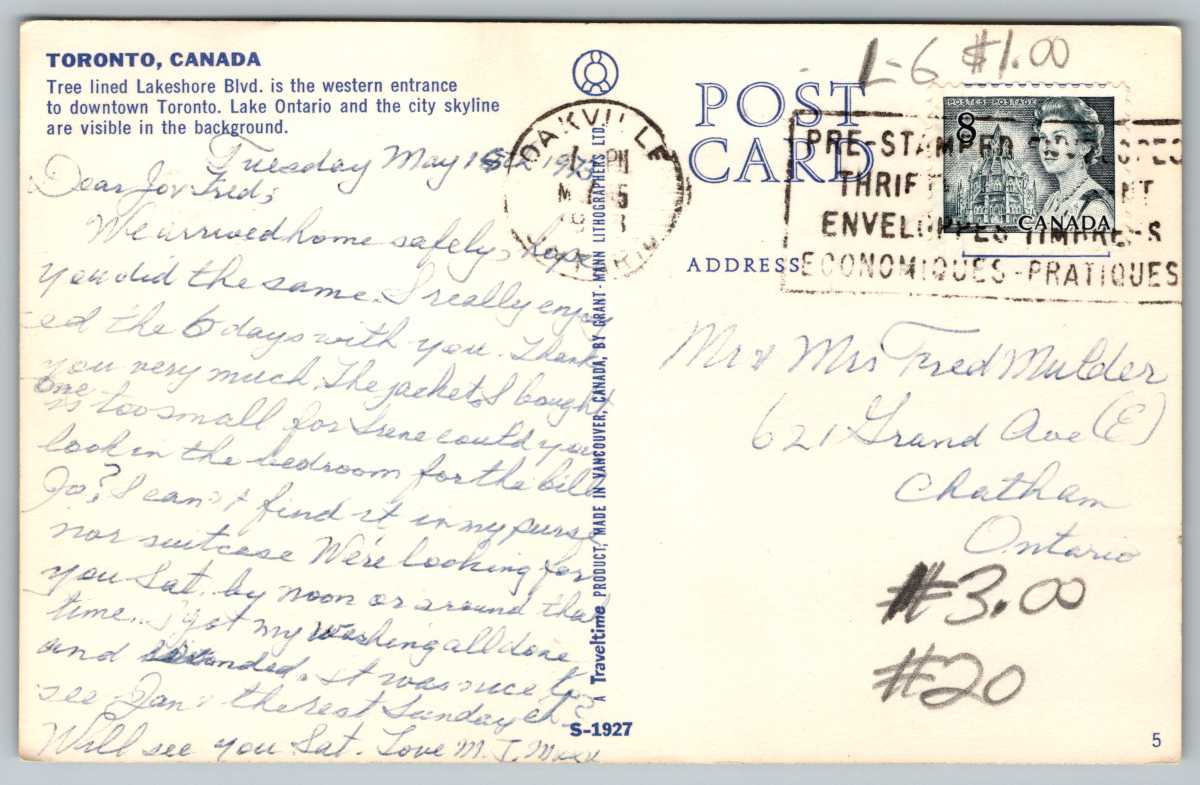 TORONTO, CANADA
Tree lined Lakeshore Blvd. is the western entrance
to downtown Toronto. Lake Ontario and the city skyline
are visible in the background.
Tuesday May 15 1973
Dear Jo & Fred;
We arrived home safely, hope
you did the same. I really enjoy
ed the 6 days with you. Thank
you very much. The jackets I bought
one
is too small for Irene could you
look in the bedroom for the bill
Jo? I can't find it in my purse
nor suitcase We're looking for
you Sat. by noon or around that
time... I got my washing all done
and It was nice to
see Jan & the rest Sunday eh?
Will see you Sat. Love M. J.
A Traveltime PRODUCT, MADE IN VANCOUVER, CANADA, BY GRANT-MANN LITHOGRAPHERS LTD.
S-1927
OAKVILLE
PM
POST
CARD
ADDRESS
L-6 $1.00
PRE-STAMPED
THRIFT
ENVELOPPES TIMBRÉES
ECONOMIQUES-PRATIQUES
POSTES POSTAGE
8
CANADA
Mr & Mrs Fred Mulder
621 Grand Ave (E)
Chatham
Ontario
#3.00
#20
5